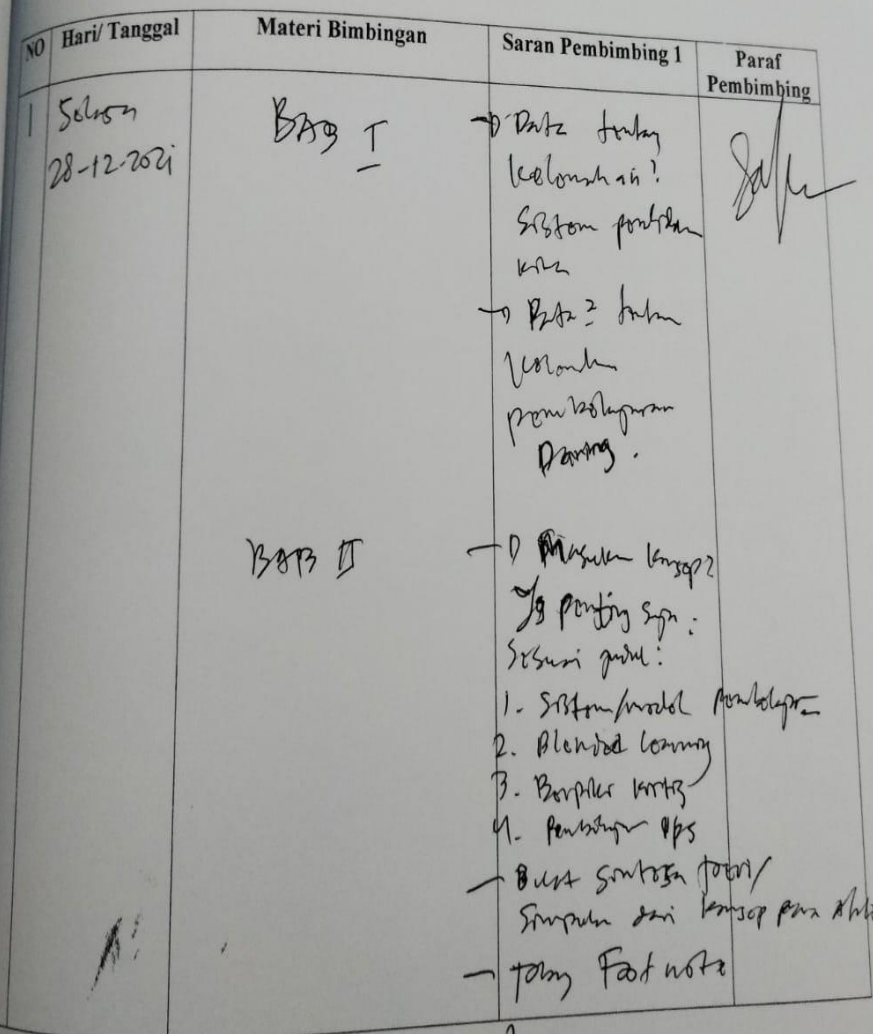 NO Hari/ Tanggal Materi Bimbingan Saran Pembimbing 1 Paraf Pembimbing
1 Selasa BAB I → Data tentang
28-12-2021 kelemahan2
Sistem pendidikan
kita
→ Data2 tentang
kelemahan
pembelajaran
Daring.
BAB II → Masukan konsep2
Yg penting saja:
Sesuai judul:
1. Sistem/model pembelajaran
2. Blended learning
3. Berpikir kritis
4. Pembelajaran IPS
- Buat sintesa teori/
Simpulan dari konsep para Ahli
- Foot note